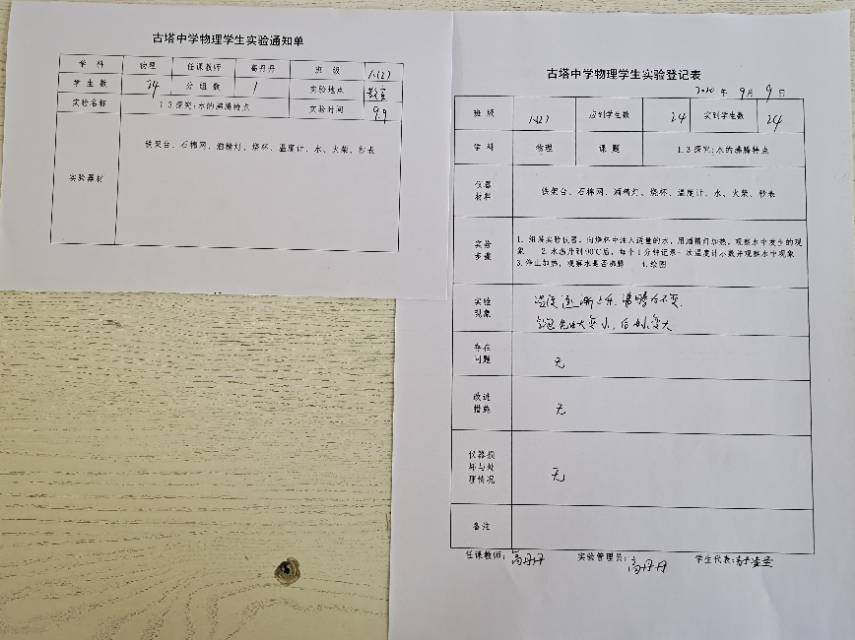 古塔中学物理学生实验通知单
学 科 物理 任课教师 高丹丹 班 级 八(2)
学 生 数 24 分 组 数 1 实验地点 教室
实验名称 1.3探究:水的沸腾特点 实验时间 9.9
实验器材 铁架台、石棉网、酒精灯、烧杯、温度计、水、火柴、秒表
古塔中学物理学生实验登记表
年 9月 9日
班 级 八(2) 应到学生数 24 实到学生数 24
学 科 物理 课 题 1.3探究:水的沸腾特点
仪器
材料
铁架台、石棉网、酒精灯、烧杯、温度计、水、火柴、秒表
实验
步骤
1. 组装实验仪器,向烧杯中注入适量的水,用酒精灯加热,观察水中发生的现
象 2.水温升到90℃后,每个1分钟记录一次温度计示数并观察水中现象
3.停止加热,观察水是否沸腾 4.绘图
实验
现象
温度逐渐上升,沸腾后不变
气泡先由大变小,后由小变大
存在
问题
无
改进
措施
无
仪器损
坏与处
理情况
无
备注
任课教师:高丹丹 实验管理员:高丹丹 学生代表: